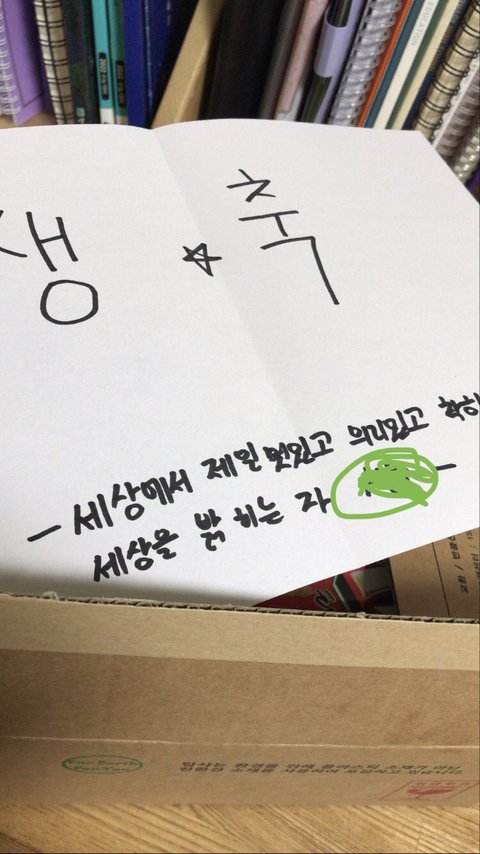 생 ☆ 축
- 세상에서 제일 멋있고 의리있고 착하
세상을 밝히는 자
EDUCATION
For Earth
For You
당사는 환경을 위해 플라스틱 소재가 아닌
친환경 소재를 사용하여 포장하고 있습니다.
교환 / 반품